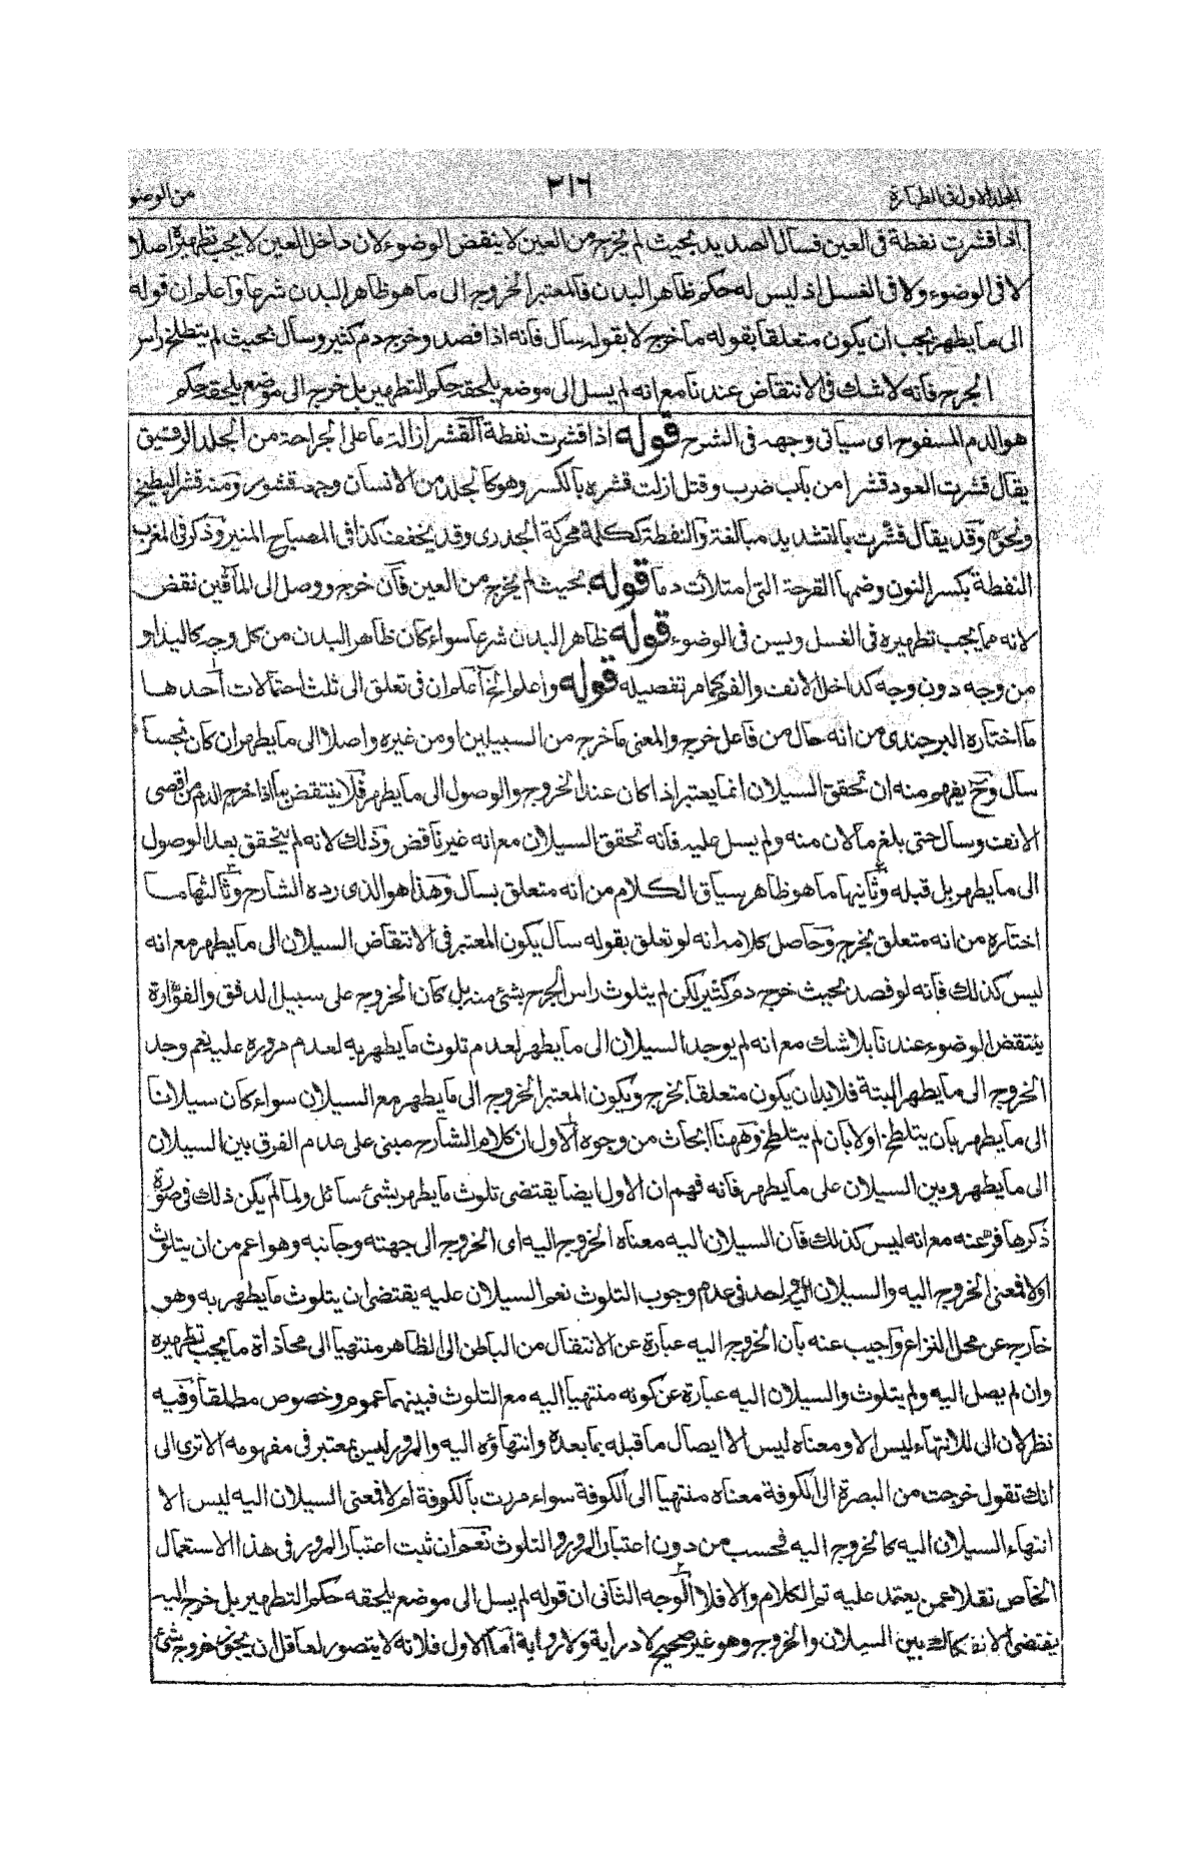 المجلد الاول فى الطهارة
٢١٦
من الوضو
اذا قشرت نفطة فى العين فسال الصديد بحيث لم يخرج من العين لا ينقض الوضوء لان داخل العين لا يجب تطهيره اصلا
لا فى الوضوء ولا فى الغسل اذ ليس له حكم ظاهر البدن فالمعتبر الخروج الى ما هو ظاهر البدن شرعا واعلم ان قوله
الى ما يطهر يجب ان يكون متعلقا بقوله ما خرج لا بقوله سال فانه اذا فصد وخرج دم كثير وسال بحيث لم يتطلخ رأس
الجرح فانه لا شك فى الانتقاض عندنا مع انه لم يسل الى موضع يلحقه حكم التطهير بل خرج الى موضع يلحقه حكم
هو الدم المسفوح اى سياتى وجهه فى الشرح قوله اذا قشرت نفطة القشر ازالة ما على الجراحة من الجلد الرقيق
يقال قشرت العود قشرا من باب ضرب وقتل ازلت قشره بالكسر وهو كالجلد من الانسان وجمعه قشور ومنه قشر البطيخ
ونحوه وقد يقال قشرت بالتشديد مبالغة والنفطة ككلمة محركة الجدرى وقد يخفف كذا فى المصباح المنير وذكر فى المغرب
النفطة بكسر النون وضمها القرحة التى امتلأت دما قوله بحيث لم يخرج من العين فان خرج ووصل الى الماقين نقض
لانه مما يجب تطهيره فى الغسل ويسن فى الوضوء قوله ظاهر البدن شرعا سواء كان ظاهر البدن من كل وجه كاليد او
من وجه دون وجه كداخل الانف والفم كما مر تفصيله قوله واعلم الخ اعلم ان فى تعلق الى ثلث احتمالات احدها
ما اختاره البرجندى من انه حال من فاعل خرج والمعنى ما خرج من السبيلين او من غيره واصلا الى ما يطهر ان كان نجسا
سال وح يفهم منه ان تحقق السيلان انما يعتبر اذا كان عند الخروج والوصول الى ما يطهر فلا ينتقض بما اذا خرج الدم من اقصى
الانف وسال حتى بلغ ما لان منه ولم يسل عليه فانه تحقق السيلان مع انه غير ناقض وذلك لانه لم يتحقق بعد الوصول
الى ما يطهر بل قبله وثانيها ما هو ظاهر سياق الكلام من انه متعلق بسال وهذا هو الذى رده الشارح وثالثها ما
اختاره من انه متعلق بخرج وحاصل كلامه انه لو تعلق بقوله سال يكون المعتبر فى الانتقاض السيلان الى ما يطهر مع انه
ليس كذلك فانه لو فصد بحيث خرج دم كثير لكن لم يتلوث رأس الجرح بشئ منه بل كان الخروج على سبيل الدفق والفوارة
ينتقض الوضوء عندنا بلا شك مع انه لم يوجد السيلان الى ما يطهر لعدم تلوث ما يطهر به لعدم مروره عليه نعم وجد
الخروج الى ما يطهر البتة فلا بد ان يكون متعلقا بخرج ويكون المعتبر الخروج الى ما يطهر مع السيلان سواء كان سيلانا
الى ما يطهر بان يتلطخ اولا بان لم يتلطخ وههنا ابحاث من وجوه الاول ان كلام الشارح مبنى على عدم الفرق بين السيلان
الى ما يطهر وبين السيلان على ما يطهر فانه فهم ان الاول ايضا يقتضى تلوث ما يطهر بشئ سائل ولما لم يكن ذلك فى صورة
ذكرها فرعنه مع انه ليس كذلك فان السيلان اليه معناه الخروج اليه اى الخروج الى جهته وجانبه وهو اعم من ان يتلوث
اولا فمعنى الخروج اليه والسيلان اليه واحد فى عدم وجوب التلوث نعم السيلان عليه يقتضى ان يتلوث ما يطهر به وهو
خارج عن محل النزاع واجيب عنه بان الخروج اليه عبارة عن الانتقال من الباطن الى الظاهر منتهيا الى محاذاة ما يجب تطهيره
وان لم يصل اليه ولم يتلوث والسيلان اليه عبارة عن كونه منتهيا اليه مع التلوث فبينهما عموم وخصوص مطلقا وفيه
نظر لان الى للانتهاء ليس الا ومعناه ليس الا ايصال ما قبله بما بعده وانتهاؤه اليه والمرور ليس بمعتبر فى مفهومه الا ترى الى
انك تقول خرجت من البصرة الى الكوفة معناه منتهيا الى الكوفة سواء مررت بالكوفة ام لا فمعنى السيلان اليه ليس الا
انتهاء السيلان اليه كالخروج اليه فحسب من دون اعتبار المرور والتلوث نعم ان ثبت اعتبار المرور فى هذا الاستعمال
الخاص نقلا عمن يعتمد عليه تم الكلام والا فلا الوجه الثانى ان قوله لم يسل الى موضع يلحقه حكم التطهير بل خرج اليه
يقتضى الانفكاك بين السيلان والخروج وهو غير صحيح لا دراية ولا رواية اما الاول فلانه لا يتصور لعاقل ان يجوز خروج شئ